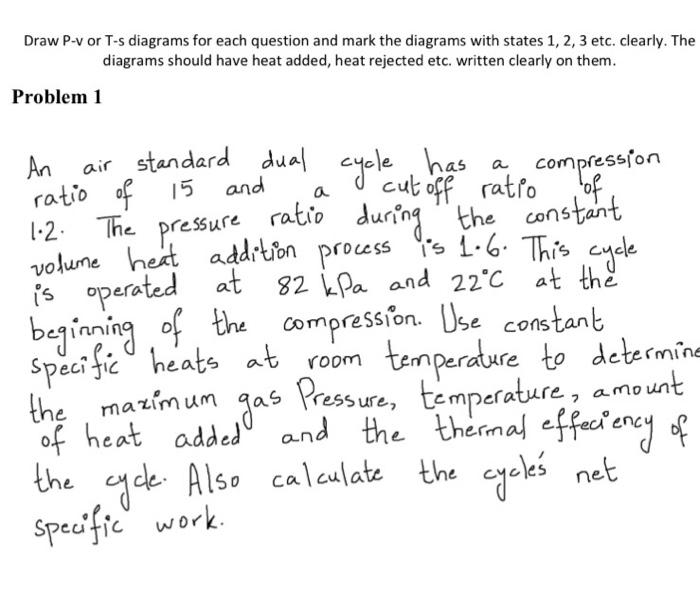 Draw P-v or T-s diagrams for each question and mark the diagrams with states 1, 2, 3 etc. clearly. The
diagrams should have heat added, heat rejected etc. written clearly on them.
Problem 1
An air standard dual cycle has a compression
ratio of 15 and a cut off ratio of
1.2. The pressure ratio during the constant
volume heat addition process is 1.6. This cycle
is operated at 82 kPa and 22°C at the
beginning of the compression. Use constant
specific heats at room temperature to determine
the maximum gas Pressure, temperature, amount
of heat added and the thermal effeciency of
the cycle. Also calculate the cycle's net
specific work.